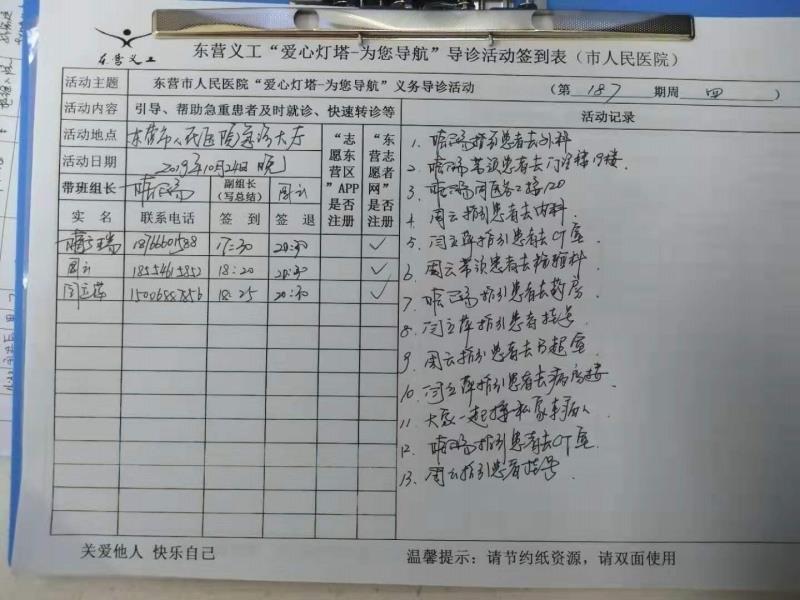 东营义工
东营义工“爱心灯塔-为您导航”导诊活动签到表（市人民医院）
活动主题 东营市人民医院“爱心灯塔-为您导航”义务导诊活动 （第 187 期周 四 ）
活动内容 引导、帮助急重患者及时就诊、快速转诊等
活动地点 东营市人民医院急诊大厅
活动日期 2019年10月24日 晚
带班组长 副组长（写总结） 周云
“志愿东营区”APP是否注册
“东营志愿者网”是否注册
实名 联系电话 签到 签退
17:30 20:30 ✓
周云 18:20 20:30 ✓
闫立萍 18:25 20:30 ✓
活动记录
1. 指引患者去外科
2. 带领患者去门诊楼19楼.
3. 同医务工接120
4. 周云指引患者去内科.
5. 闫立萍指引患者去CT室
6. 周云带领患者去检验科
7. 指引患者去药房
8. 闫立萍指引患者挂号.
9. 周云指引患者去B超室
10. 闫立萍指引患者去病房楼.
11. 大家一起接私家车病人
12. 指引患者去CT室
13. 周云指引患者挂号.
关爱他人 快乐自己
温馨提示：请节约纸资源，请双面使用